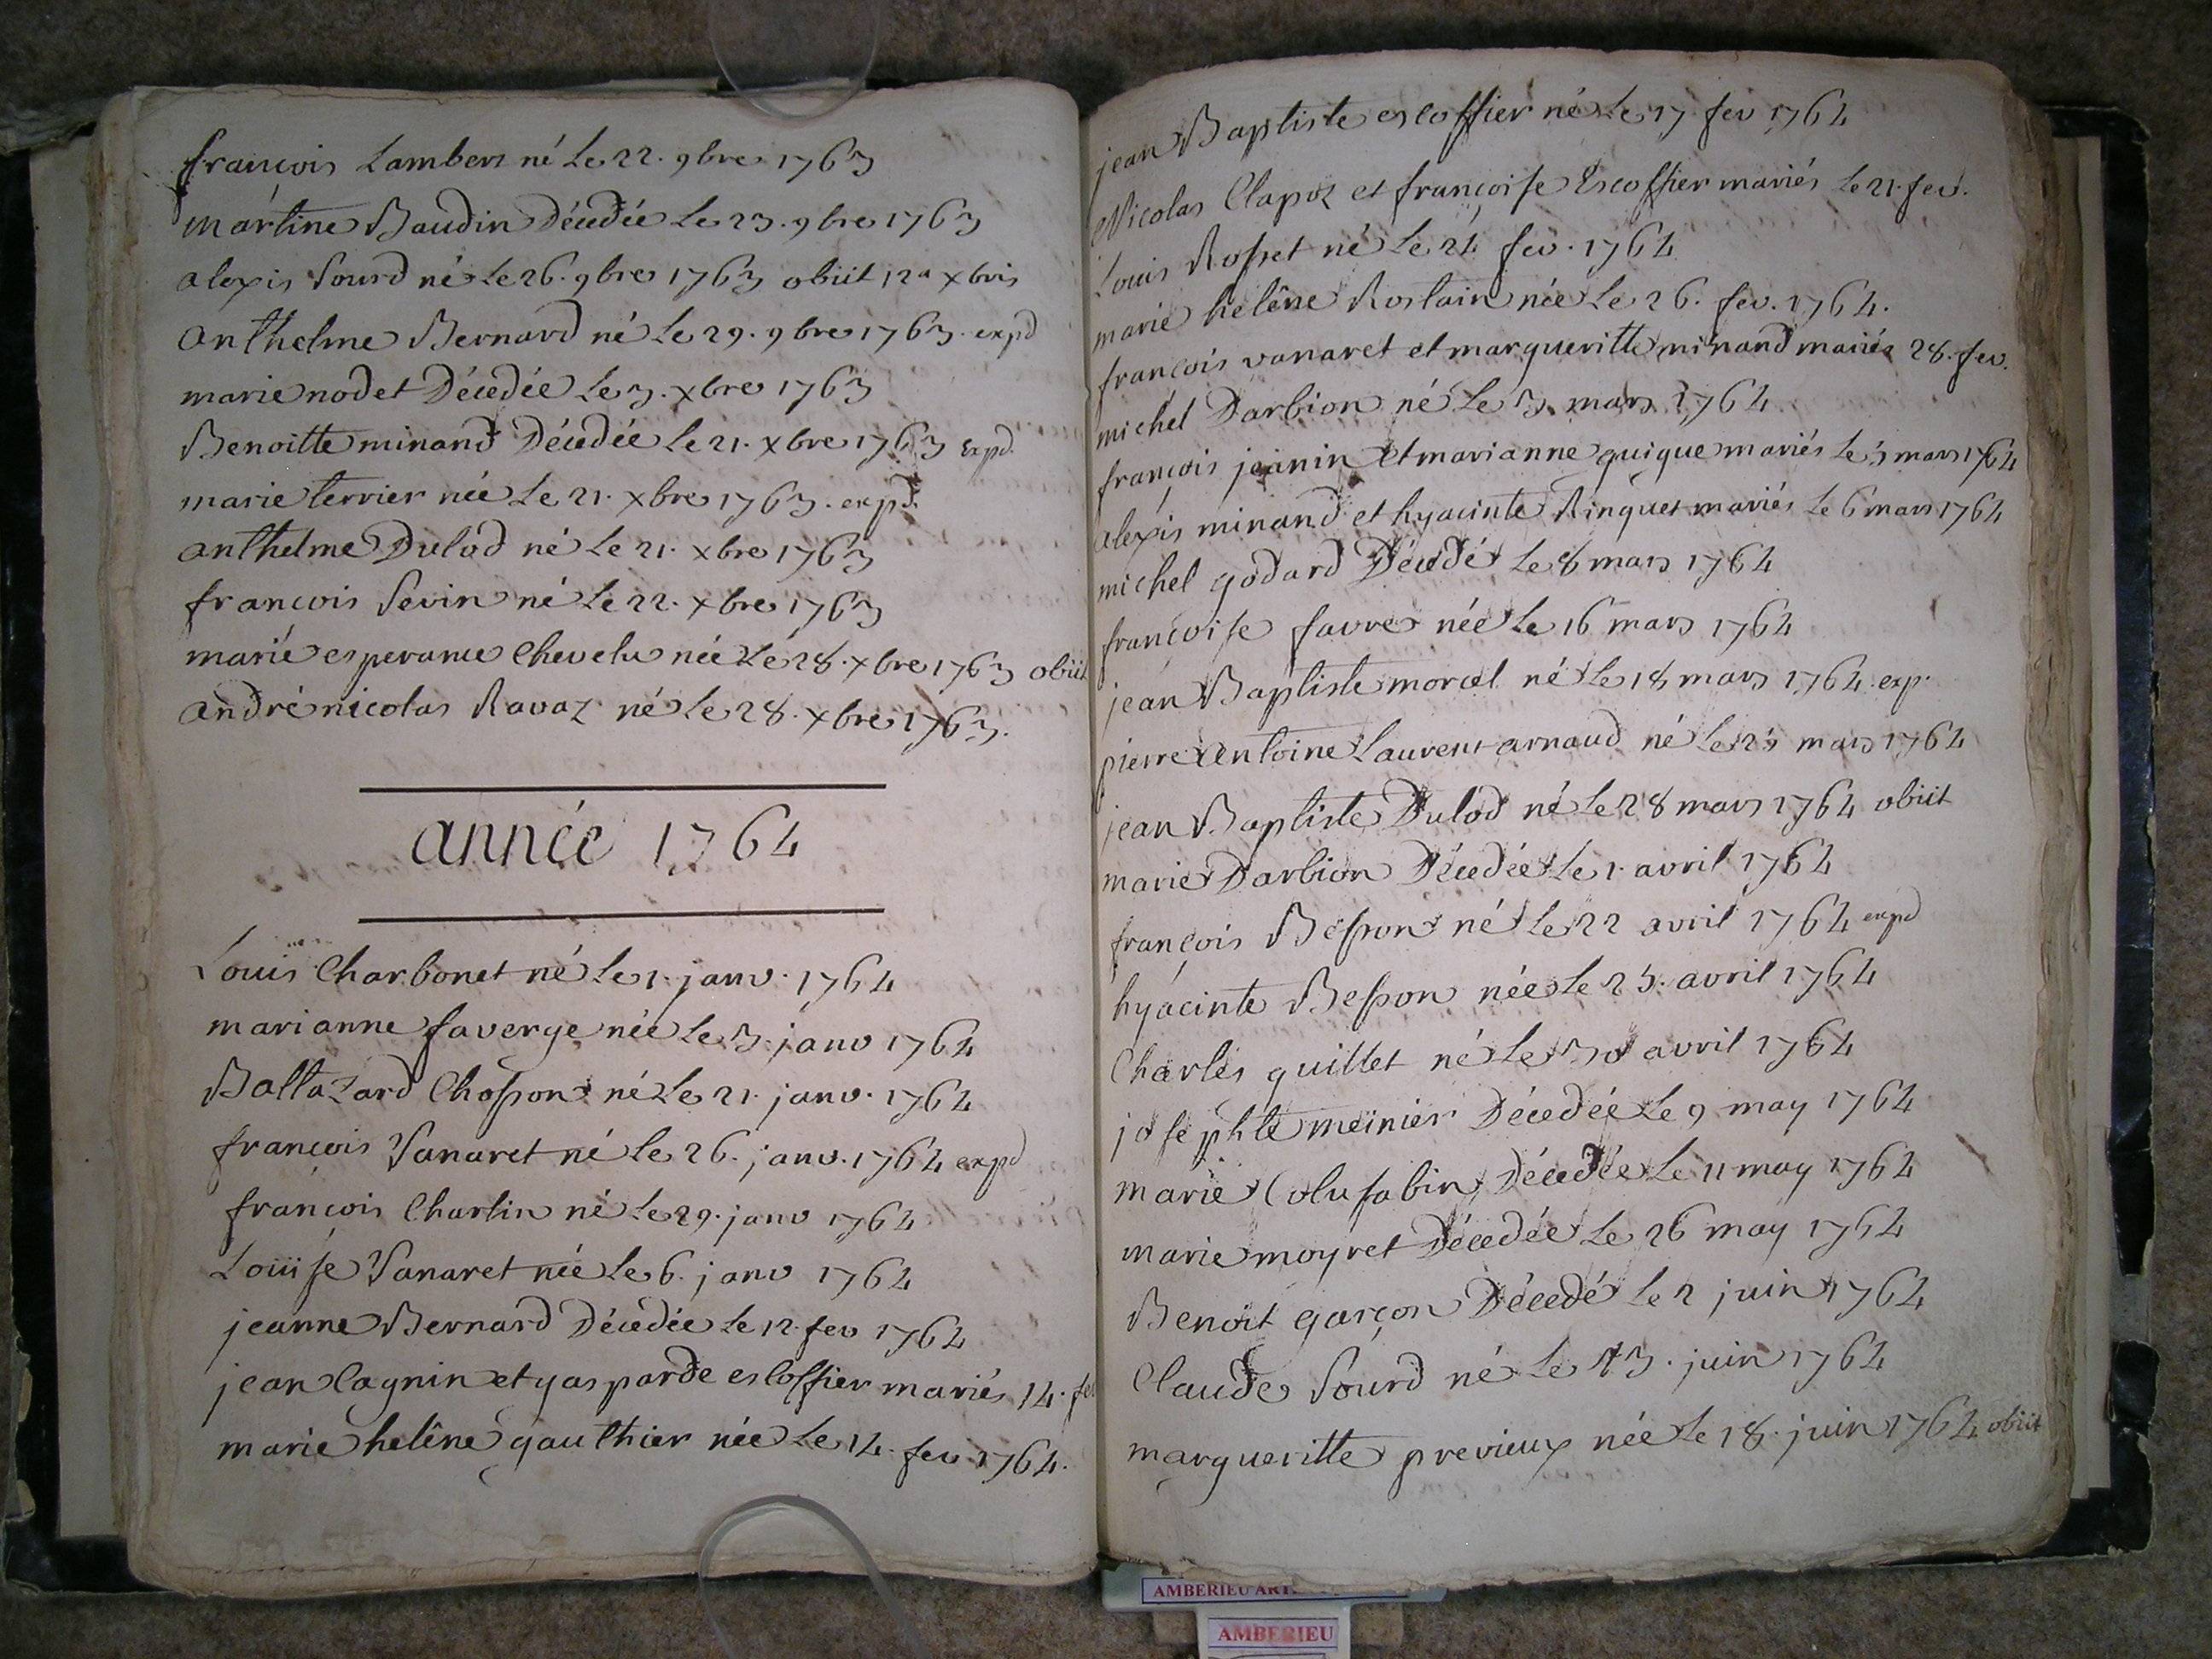 françois Lambert né Le 22. 9bre 1763
martine Baudin Décedée Le 23. 9bre 1763
alexis Sourd né Le 26. 9bre 1763 obiit 12a xbris
anthelme Bernard né Le 29. 9bre 1763. expd
marie nodet Décedée Le 3. xbre 1763
Benoitte minand Décedée Le 21. xbre 1763 expd.
marie terrier née Le 21. xbre 1763. expd.
anthelme Dulod né Le 21. xbre 1763
françois Sevin né Le 22. xbre 1763
marie esperance Chevelu née Le 28. xbre 1763 obiit
andré nicolas Ravaz né Le 28. xbre 1763.
année 1764
Louis Charbonet né Le 1. janv. 1764
marianne faverge née Le 3. janv 1764
Baltazard Chosson né Le 21. janv. 1764
françois Vanaret né Le 26. janv. 1764 expd
françois Charlin né Le 29. janv 1764
Louise Vanaret née Le 6. janv 1764
jeanne Bernard Décedée Le 12. fev 1764
jean Cagnin et gasparde escoffier mariés 14. fev
marie helêne gauthier née Le 14. fev. 1764.
jean Baptiste escoffier né Le 17 fev 1764
Nicolas Clapot et françoise Escoffier mariés Le 21. fev.
Louis Rosset né Le 24 fev. 1764
marie helêne Rostain née Le 26. fev. 1764.
françois vanaret et margueritte minand mariés 28. fev.
michel Darbion né Le 3. mars 1764
françois jeanin et marianne guigue mariés Le 5 mars 1764
alexis minand et hyacinte Ringuet mariés Le 6 mars 1764
michel godard Décedé Le 8 mars 1764
françoise favre née Le 16 mars 1764
jean Baptiste morcel né Le 18 mars 1764. exp.
pierre antoine Laurent arnaud né Le 25 mars 1764
jean Baptiste Dulod né Le 28 mars 1764 obiit
marie Darbion Décedée Le 1. avril 1764
françois Besson né Le 22 avril 1764 expd
hyacinte Besson née Le 25. avril 1764
Charles guillet né Le 30 avril 1764
josephte meinier Décedée Le 9 may 1764
marie Colusabin Décedée Le 11 may 1764
marie moyret Décedée Le 26 may 1764
Benoit garçon Décedé Le 2 juin 1764
Claude Sourd né Le 13. juin 1764
margueritte previeux née Le 18. juin 1764 obiit
AMBERIEU
AMBERIEU